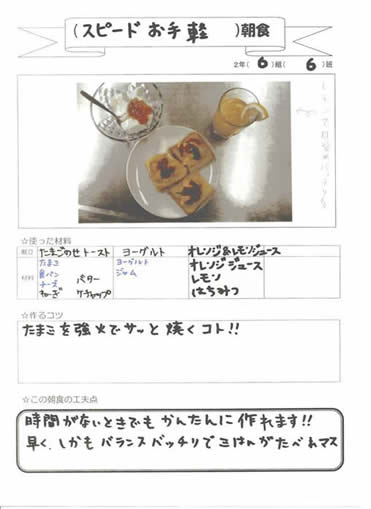 (スピードお手軽)朝食
2年(6)組(6)班
レモンで目覚めバッチリ
☆使った材料
献立 たまごのせトースト ヨーグルト オレンジ&レモンジュース
材料 たまご ヨーグルト オレンジジュース
食パン バター ジャム レモン
チーズ ケチャップ はちみつ
☆作るコツ
たまごを強火でサッと焼くコト!!
☆この朝食の工夫点
時間がないときでもかんたんに作れます!!
早く、しかもバランスバッチリでごはんがたべれマス